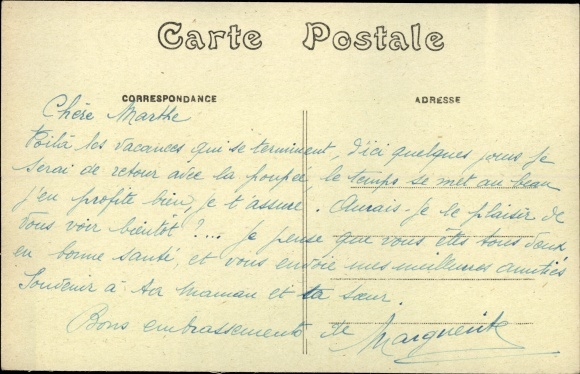 Carte Postale
CORRESPONDANCE
ADRESSE
Chère Marthe
Voilà les vacances qui se terminent, d'ici quelques jours je
serai de retour avec la poupée, le temps se met au beau
j'en profite bien, je t'assure. Aurais-je le plaisir de
vous voir bientôt?... je pense que vous êtes tous deux
en bonne santé, et vous envoie mes meilleures amitiés
Souvenir à ta maman et ta sœur.
Bons embrassements de Marguerite